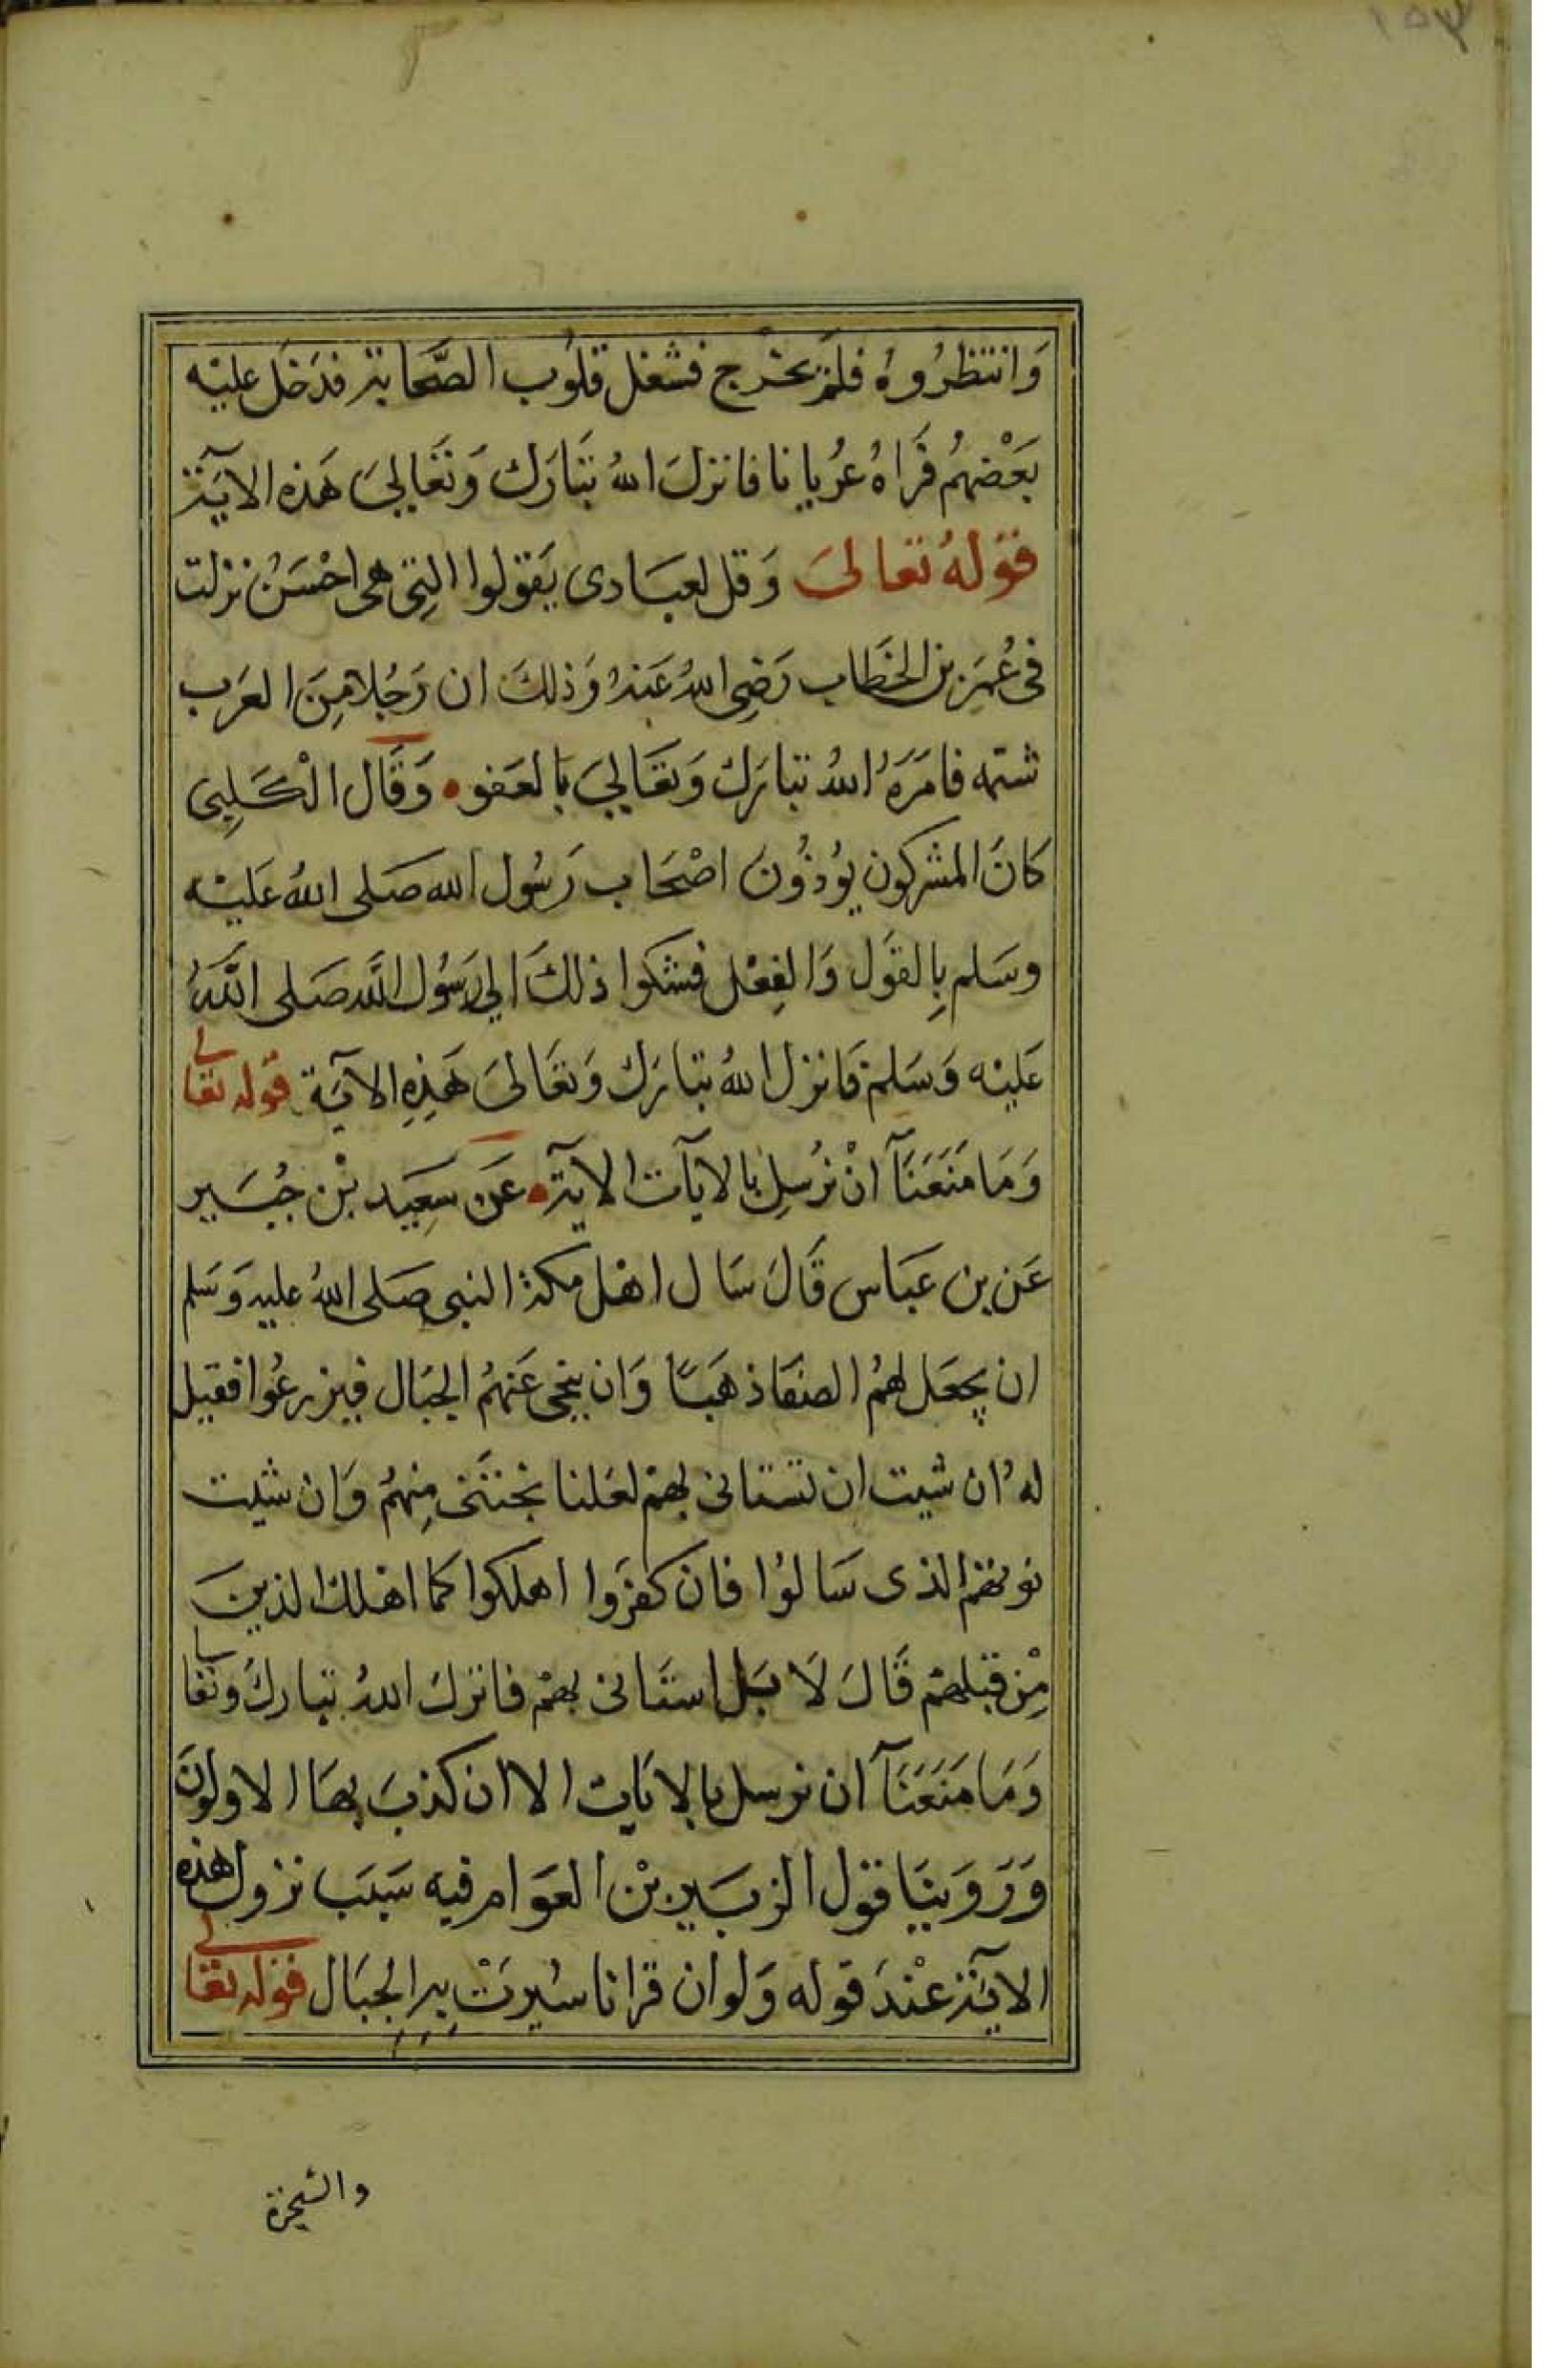 ١٥٣
وَانتظرُوهُ فلَمْ يخْرج فشغل قلوُب الصَّحابة فدَخل عليْه
بعَْضهُم فَراهُ عُريانا فانزلَ اللهُ تبَارَك وَتعَالىَ هَذه الايَة
قوْلهُ تعالىَ وَقل لعبَادى يَقوْلوا التِى هى احْسَنُ نزلت
فى عُمَر بن الخَطاب رَضِى اللهُ عَنهُ وَذلكَ ان رَجُلا مِنَ العَرب
شتمه فامَرَهُ اللهُ تبارَك وَتعَاليَ بالعَفو وَقَال الْكَلِبى
كانَ المشركون يوُذُونَ اصْحَاب رَسُول الله صَلى اللهُ عَليْه
وسَلم بِالقَول وَالفِعْل فشكوا ذلكَ الي رَسُول الله صَلى اللهُ
عَليْه وَسَلمْ فَانزل اللهُ تبارَك وَتعَالىَ هَذِهِ الآيَة قوْله تعالى
وَمَا مَنَعَنَآ انْ نرُسِل بالايآت الآية عَن سَعِيَد بْن جُبَير
عَن بن عَباس قَالَ سَال اهْل مكة النبى صَلى اللهُ عليه وَسَلم
ان يجعَل لهمُ الصَفا ذهَبًا وَان ينحى عَنهمُ الجبَال فيزرعُوا فقيل
لهُ ان شيت ان تسْتانى بهمْ لعَلنا نجْتَنى مِنهمُ وَان شيت
نوتهمْ الذى سَالوُا فان كفرَوا اهلكوا كما اهْلك الذينَ
مِنْ قبْلهمْ قَالَ لَا بَل استَانى بهمْ فانزلَ اللهُ تبارك وَتعَالى
وَمَا مَنَعَنَآ ان نرسل بالايَات الا ان كذبَ بهَا الاولون
وَرَوَينَا قوْل الزبَير بْن العَوام فيه سَبَب نزول هذه
الآية عنْدَ قوله وَلو ان قرانا سُيرتْ بهِ الجبَال قوْله تعالى
والشجرة